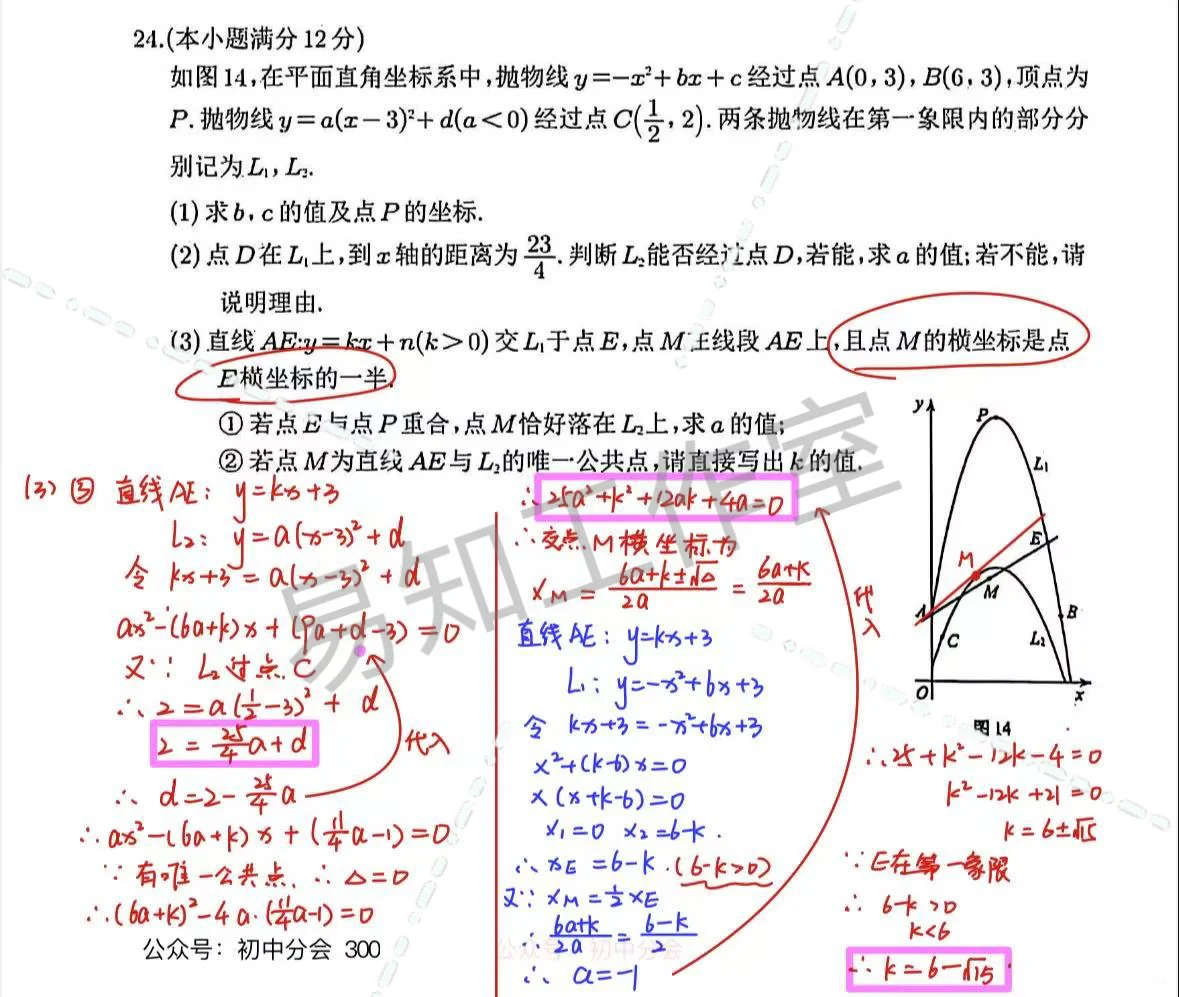 24.(本小题满分12分)
如图14,在平面直角坐标系中,抛物线y=-x²+bx+c经过点A(0,3),B(6,3),顶点为
P.抛物线y=a(x-3)²+d(a<0)经过点C(1/2,2).两条抛物线在第一象限内的部分分
别记为L₁,L₂.
(1)求b,c的值及点P的坐标.
(2)点D在L₁上,到x轴的距离为23/4.判断L₂能否经过点D,若能,求a的值;若不能,请
说明理由.
(3)直线AE:y=kx+n(k>0)交L₁于点E,点M在线段AE上,且点M的横坐标是点
E横坐标的一半.
①若点E与点P重合,点M恰好落在L₂上,求a的值;
②若点M为直线AE与L₂的唯一公共点,请直接写出k的值.
(3)② 直线AE: y=kx+3
L₂: y=a(x-3)²+d
令 kx+3=a(x-3)²+d
ax²-(6a+k)x+(9a+d-3)=0
又∵ L₂过点C
∴ 2=a(1/2-3)²+d
2=25/4a+d
代入
∴ d=2-25/4a
∴ax²-(6a+k)x+(11/4a-1)=0
∵有唯一公共点 ∴△=0
∴(6a+k)²-4a·(11/4a-1)=0
公众号：初中分会 300
∴25a²+k²+12ak+4a=0
∴交点M横坐标为
x_M=(6a+k±√△)/2a=(6a+k)/2a
直线AE: y=kx+3
L₁: y=-x²+6x+3
令 kx+3=-x²+6x+3
x²+(k-6)x=0
x(x+k-6)=0
x₁=0 x₂=6-k.
∴x_E=6-k.(6-k>0)
又∵x_M=1/2x_E
∴(6a+k)/2a=(6-k)/2
公众号：初中分会
∴ a=-1
代入
y
P
L₁
E
M
M
A
B
C
L₂
O
x
图14
∴25+k²-12k-4=0
k²-12k+21=0
k=6±√15
∵E在第一象限
∴ 6-k>0
k<6
∴k=6-√15.
易知工作室